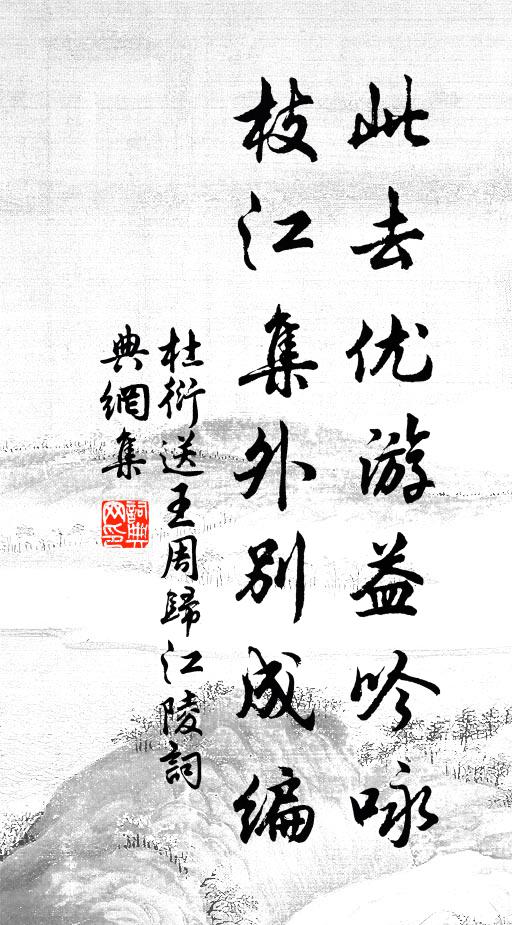 此去优游益吟咏
枝江集外别成编
杜衍送王周歸江陵詞
典網集
詞典
网印